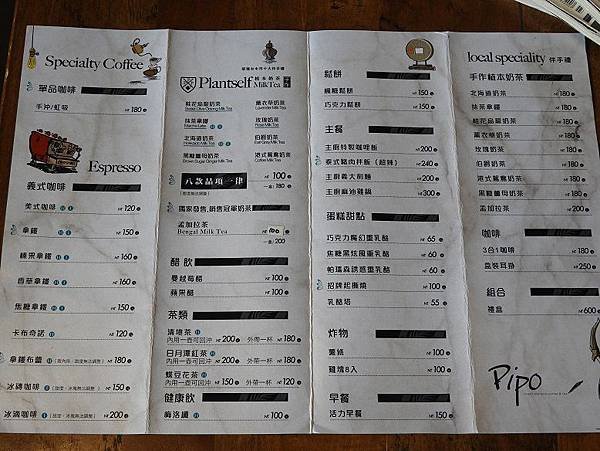 Specialty Coffee
單品咖啡
手沖/虹吸 NT 180
Espresso
義式咖啡
美式咖啡 NT 120
拿鐵 NT 150
榛果拿鐵 NT 160
香草拿鐵 NT 160
焦糖拿鐵 NT 150
卡布奇諾 NT 120
拿鐵布蕾 NT 180
冰磚咖啡 NT 150
冰滴咖啡 NT 200
Plantself 植本奶茶
MilkTea
桂花烏龍奶茶 薰衣草奶茶
Lavender Milk Tea
抹茶拿鐵 玫瑰奶茶
Matcha Latte Rose Milk Tea
北海道奶茶 伯爵奶茶
Hokkaido Milk Tea Earl Grey Milk Tea
黑糖薑母奶茶 港式鴛鴦奶茶
Brown Sugar Ginger Milk Tea
八款品項一律 NT 100
一壺 180
獨家發售,銷售冠軍奶茶
孟加拉茶 NT 100
Bengal Milk Tea
一壺 200
醋飲
蔓越莓醋 NT 100
蘋果醋 NT 100
茶類
清境茶
內用一壺可回沖 NT 200 外帶一杯 NT 180
日月潭紅茶
內用一壺可回沖 NT 200 外帶一杯 NT 180
蝶豆花茶
內用一壺可回沖 NT 200 外帶一杯 NT 180
健康飲
梅洛鐵 NT 100
鬆餅
楓糖鬆餅 NT 150
巧克力鬆餅 NT 150
主餐
主廚特製咖哩飯 NT 200
泰式豬肉拌飯(超辣) NT 240
主廚義大利麵 NT 200
主廚麻油雞鍋 NT 300
蛋糕甜點
巧克力魔幻重乳酪 NT 65
焦糖黑炫風重乳酪 NT 60
帕瑪森誘惑重乳酪 NT 60
招牌起司燒 NT 100
乳酪塔 NT 55
炸物
薯條 NT 100
雞塊8入 NT 100
早餐
活力早餐 NT 150
local speciality 伴手禮
手作植本奶茶
北海道奶茶 NT 180
抹茶拿鐵 NT 180
桂花烏龍奶茶 NT 180
薰衣草奶茶 NT 180
玫瑰奶茶 NT 180
伯爵奶茶 NT 180
港式鴛鴦奶茶 NT 180
黑糖薑母奶茶 NT 180
孟加拉茶 NT 200
咖啡
3合1咖啡 NT 180
盒裝耳掛 NT 250
組合
禮盒 NT 600
Pipo